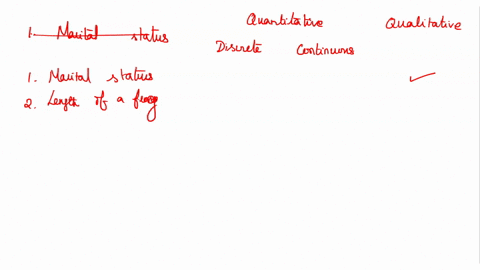 1. Marital status
Quantitative
Qualitative
Discrete
Continuous
1. Marital status
2. Length of a frog